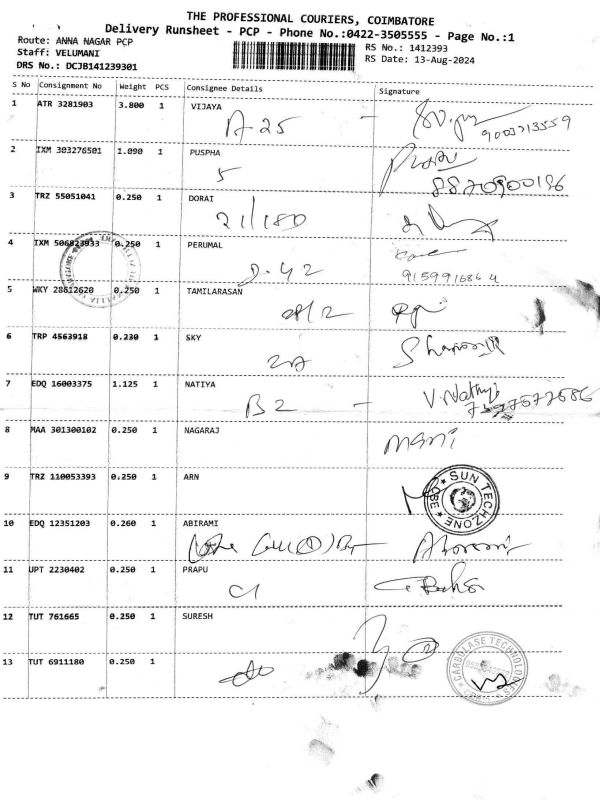 THE PROFESSIONAL COURIERS, COIMBATORE
Delivery Runsheet - PCP - Phone No.:0422-3505555 - Page No.:1
Route: ANNA NAGAR PCP
RS No.: 1412393
Staff: VELUMANI
RS Date: 13-Aug-2024
DRS No.: DCJB141239301
S No Consignment No Weight PCS Consignee Details Signature
1 ATR 3281903 3.800 1 VIJAYA
A-25 -
2 IXM 303276501 1.090 1 PUSPHA
5 8870900186
3 TRZ 55051041 0.250 1 DORAI
21/180
4 IXM 506823933 0.250 1 PERUMAL
9159916864
5 WKY 28612620 0.250 1 TAMILARASAN
6 TRP 4563918 0.230 1 SKY
7 EDQ 16003375 1.125 1 NATIYA
B2 - V.Nathiya
8 MAA 301300102 0.250 1 NAGARAJ
mani
9 TRZ 110053393 0.250 1 ARN
SUN TECHZONE CBE
10 EDQ 12351203 0.260 1 ABIRAMI
11 UPT 2230402 0.250 1 PRAPU
C1
12 TUT 761665 0.250 1 SURESH
13 TUT 6911180 0.250 1
CARBOLASE TECHNOLOGIES